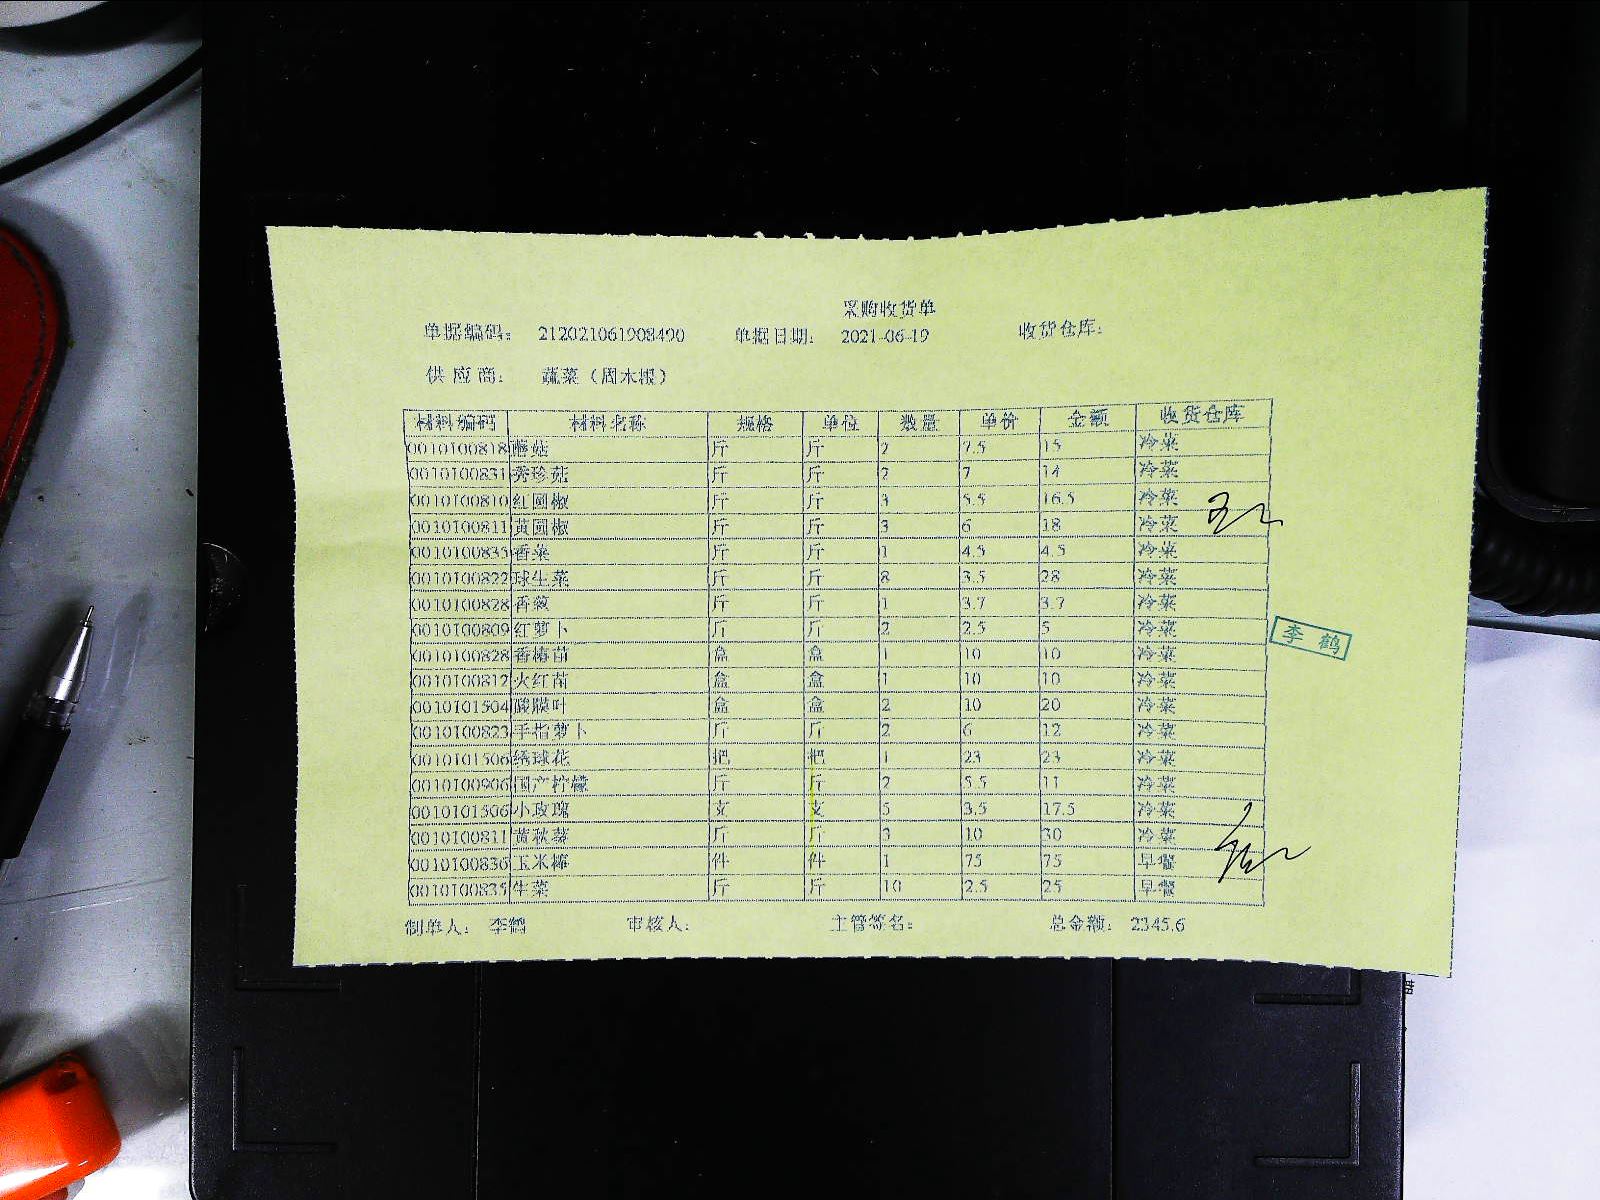 采购收货单
单据编码： 212021061908490 单据日期： 2021-06-19 收货仓库：
供应商： 蔬菜（周木根）
材料编码 材料名称 规格 单位 数量 单价 金额 收货仓库
0010100818 蘑菇 斤 斤 2 7.5 15 冷菜
0010100831 秀珍菇 斤 斤 2 7 14 冷菜
0010100810 红圆椒 斤 斤 3 5.5 16.5 冷菜
0010100811 黄圆椒 斤 斤 3 6 18 冷菜
0010100835 香菜 斤 斤 1 4.5 4.5 冷菜
0010100822 球生菜 斤 斤 8 3.5 28 冷菜
0010100828 香葱 斤 斤 1 3.7 3.7 冷菜
0010100809 红萝卜 斤 斤 2 2.5 5 冷菜
李鹤
0010100828 香椿苗 盒 盒 1 10 10 冷菜
0010100812 火红苗 盒 盒 1 10 10 冷菜
0010101504 酸膜叶 盒 盒 2 10 20 冷菜
0010100823 手指萝卜 斤 斤 2 6 12 冷菜
0010101506 绣球花 把 把 1 23 23 冷菜
0010100906 国产柠檬 斤 斤 2 5.5 11 冷菜
0010101506 小玫瑰 支 支 5 3.5 17.5 冷菜
0010100811 黄秋葵 斤 斤 3 10 30 冷菜
0010100836 玉米棒 件 件 1 75 75 早餐
0010100835 生菜 斤 斤 10 2.5 25 早餐
制单人： 李鹤 审核人： 主管签名： 总金额： 2345.6